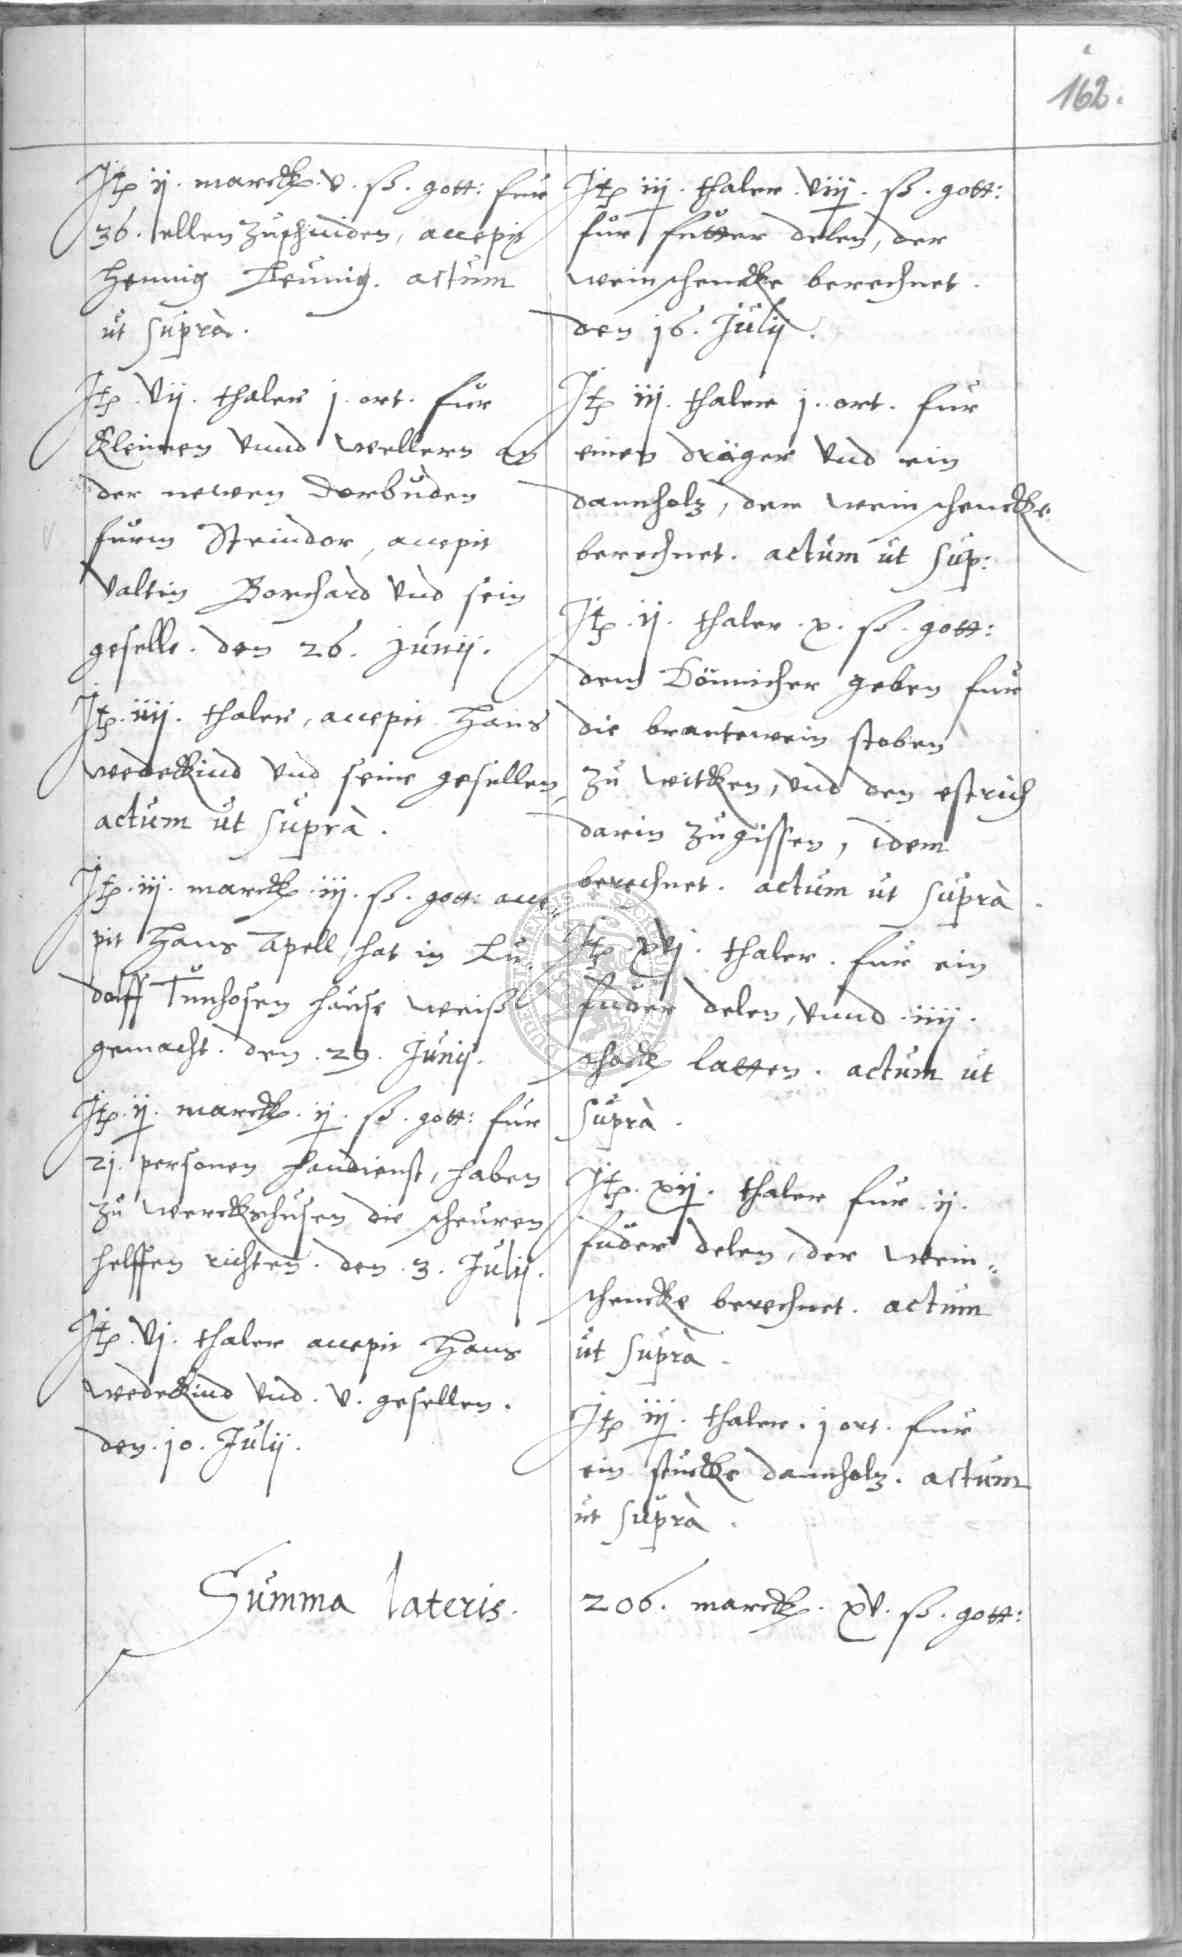 162.
Jtp ij. marck. v. ß. gott: fur
36. ellen zuschniden, accepit
Hennig Leunig. actum
ut suprà.
Jtp. vij. thaler j. ort. fur
Kleimen vnnd wellern an
der newen dorbuden
furm Steindor, accepit
Valtin Borchard vnd sein
geselle. den 26. junij.
Jtp. iiij. thaler, accepit Hans
wedekind vnd seine gesellen,
actum ut suprà.
Jtp. iij. marck. iij. ß. gott: acce
pit Hans Apell, hat in Lu
dolff Tunhosen hause weiß
gemacht. den. 29. Junij.
Jtp. ij. marck. ij. ß. gott: fur
21. personen handienst, haben
zu werckshusen die scheuren
helffen richten. den. 3. Julij.
Jtp. vj. thaler accepit Hans
wedekind vnd. v. gesellen.
den. 10. Julij.
Jtp iij. thaler. viij. ß. gott:
fur futter delen, der
weinschencke berechnet.
den 16. Julij.
Jtp iij. thaler j. ort. fur
einen dräger vnd ein
dannholz, der weinschencke
berechnet. actum ut sup:
Jtp. ij. thaler. x. ß. gott:
dem Dönnicher geben fur
die brantewein stoben
zu witken, vnd den estrich
darin zugissen, idem
berechnet. actum ut suprà.
Jtp xvj. thaler. fur ein
fuder delen, vnnd. iiij.
schock latten. actum ut
suprà.
Jtp. xij. thaler fur. ij.
fuder delen, der wein„
schencke berechnet. actum
ut suprà.
Jtp iij. thaler. j ort. fur
ein stucke dannholz. actum
ut suprà.
Summa lateris. 206. marck. xv. ß. gott: